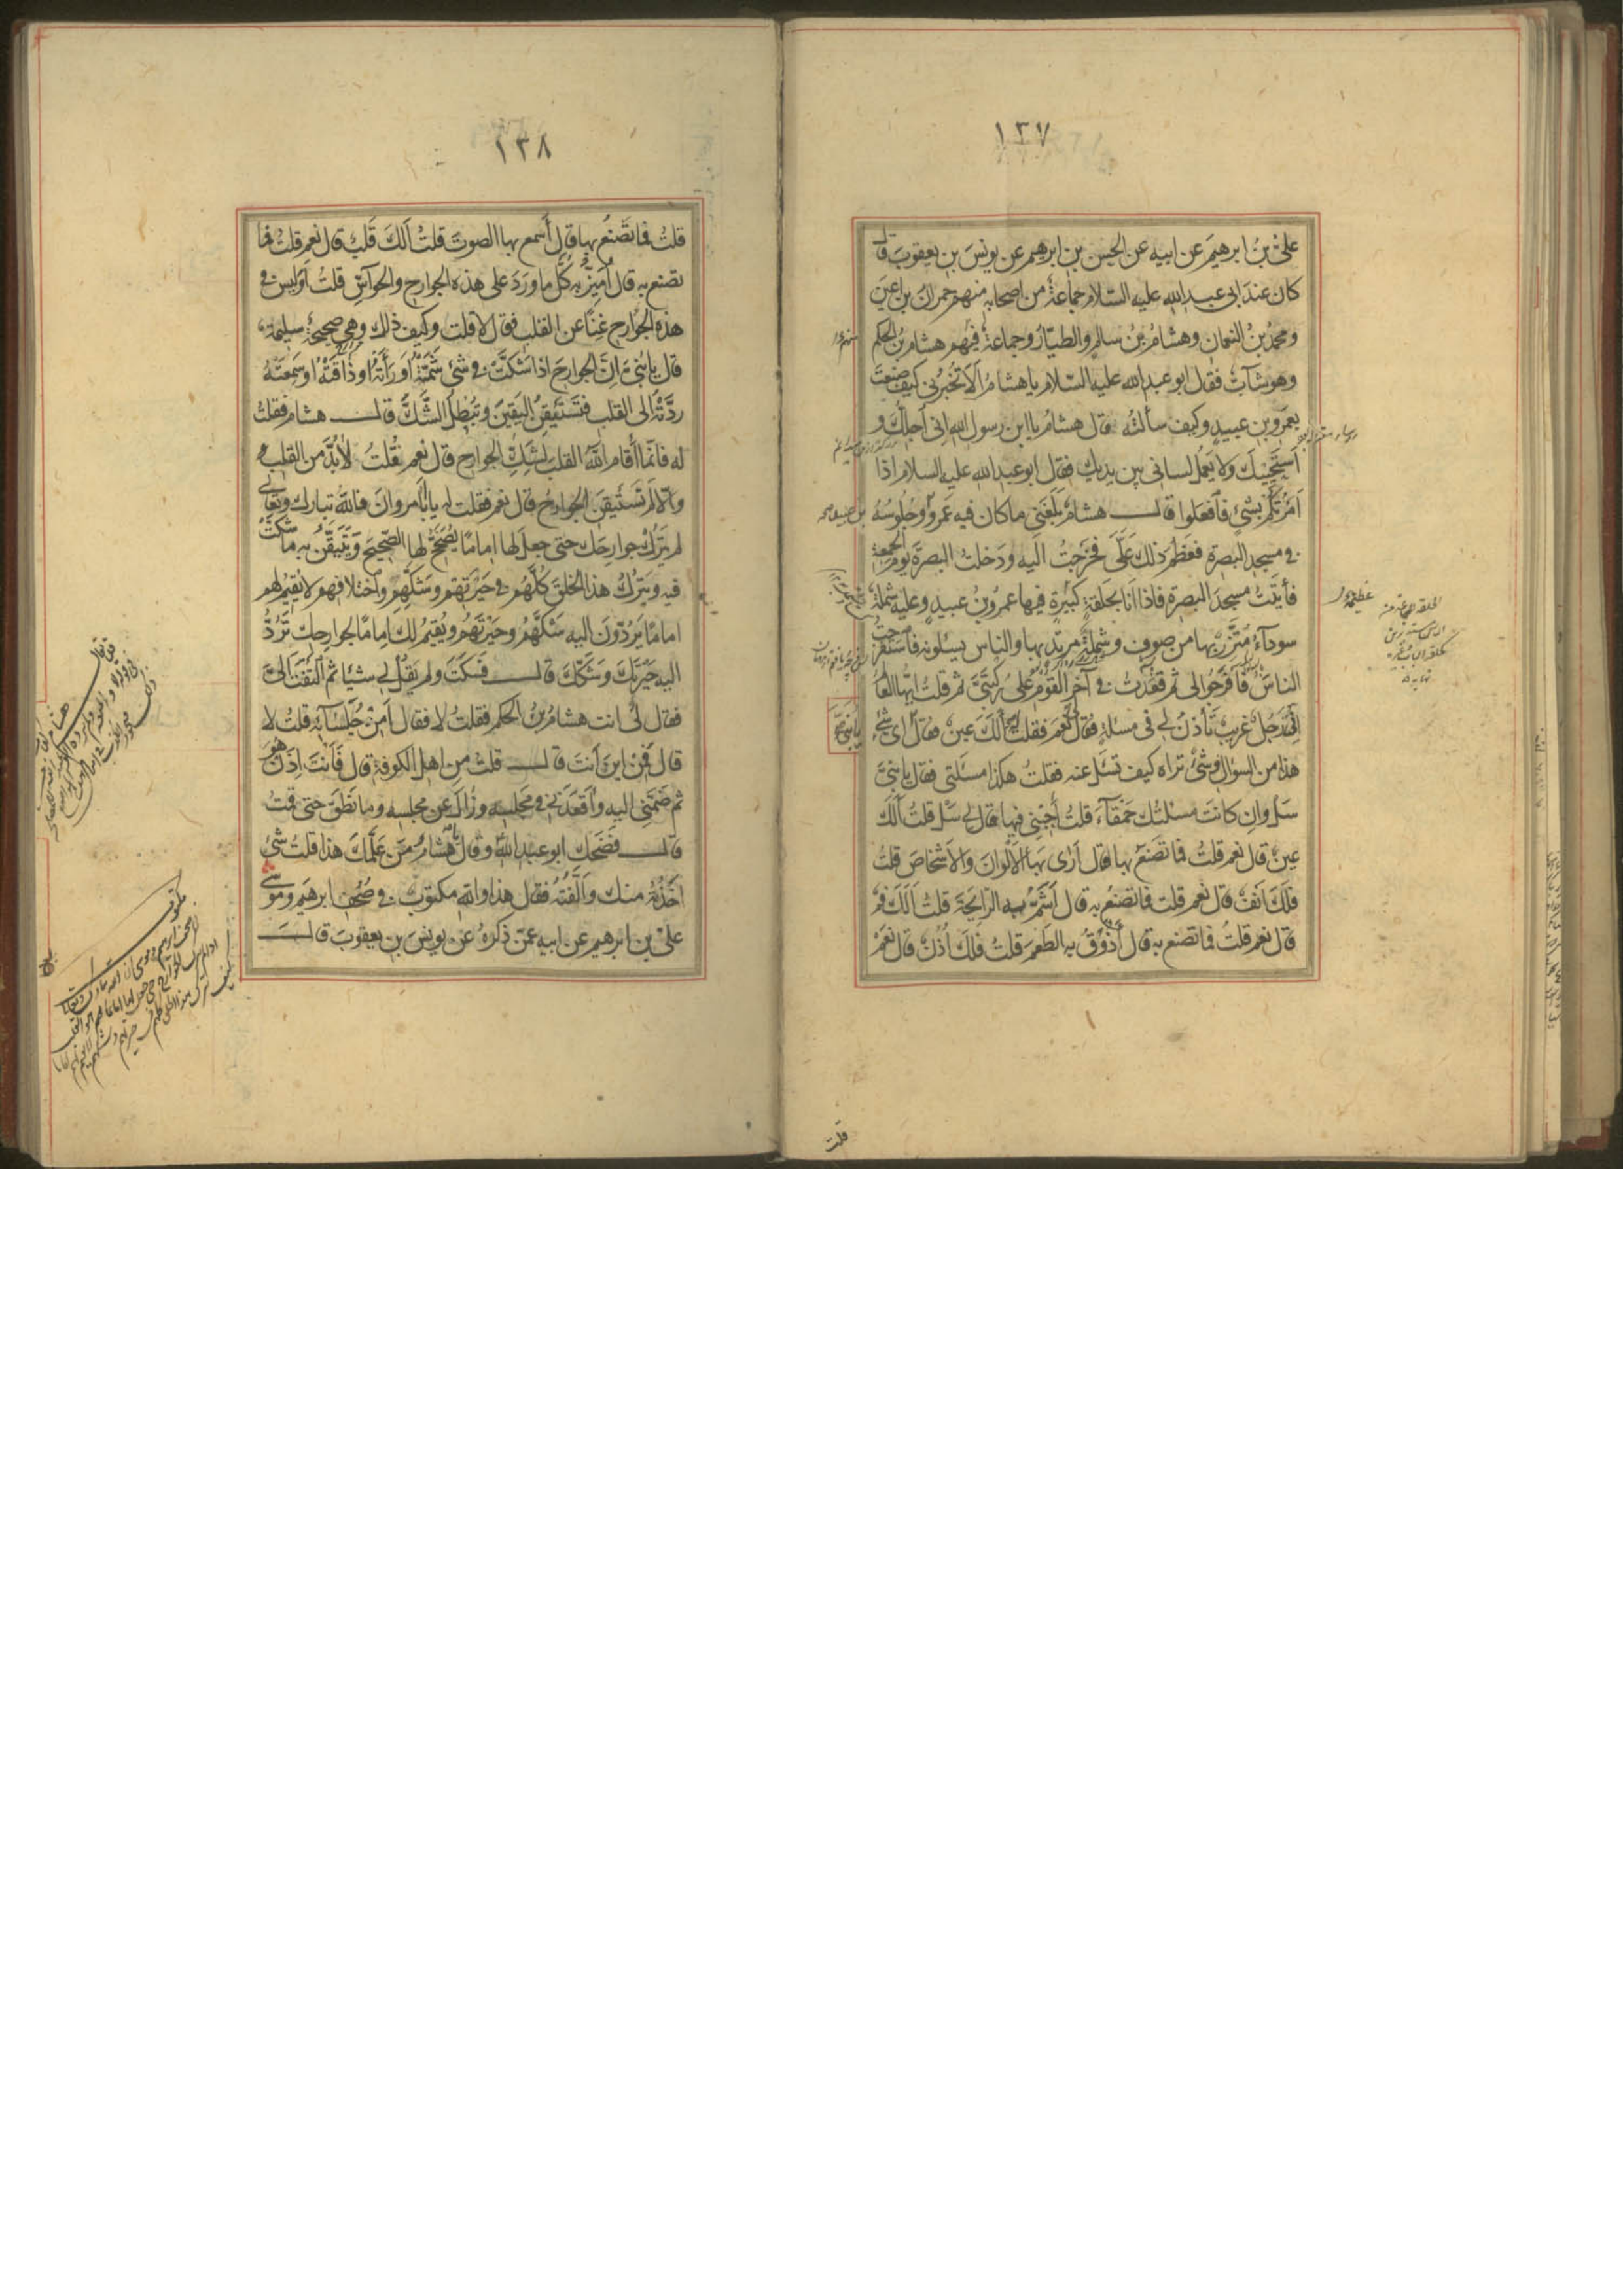 ١٣٧
علىُّ بنُ ابرهيمَ عن ابيه عن الحسن بن ابرهيم عن يونسَ بنِ يعقوبَ قال
كان عندَ ابى عبد الله عليه السّلام جماعةٌ من اصحابه منهم حمرانُ بن اعين
ومحمدُ بنُ النعمان وهشامُ بنُ سالمٍ والطيّارُ وجماعةٌ فيهم هشامُ بنُ الحكم
وهو شابٌّ فقال ابو عبد الله عليه السّلام يا هشامُ ألا تُخبرُنى كيف صنعتَ
بعمرو بن عبيدٍ وكيف سألتَه قال هشامُ يا ابن رسول الله انى اُجلّك و
اَستَحْيِيكَ ولا يَعملُ لسانى بين يديك فقال ابو عبد الله عليه السلام اذا
اَمَرْتُكُم بشئٍ فافعَلوا قال هشامٌ بَلَغَنِى ما كان فيه عَمروٌ وجُلُوسُهُ
فى مسجد البصرة فعَظُمَ ذلك عَلَىَّ فخرَجتُ اليه ودَخلتُ البصرةَ يومَ الجمعة
فأتيتُ مسجدَ البصرة فاذا اَنَا بحَلقةٍ كبيرةٍ فيها عمرُو بنُ عبيدٍ وعليه شَملةٌ
سودآءُ مُتَّزِرٌ بها من صوفٍ وشملةٌ مرتدٍ بها والناس يسئلونه فاستَفرجتُ
الناسَ فاَفرَجُوا لى ثم قعَدتُ فى آخر القَومِ على رُكبتَىَّ ثم قلتُ ايّها العالم
اِنّى رَجلٌ غريبٌ تَأذنُ لى فى مسئلةٍ فقال لى نعم فقلت له اَلَكَ عينٌ فقال اىُّ شئ
يا بُنىّ
هذا من السؤال وشئٌ تراه كيف تسئل عنه فقلتُ هكذا مسئلتى فقال يا بنىَّ
سَل وان كانت مسئلتك حَمْقاءَ قلتُ اَجِبْنى فيها قال لى سَل قلتُ اَلَكَ
عينٌ قال نعم قلتُ فما تَصنعُ بها قال اَرٰى بها الالوانَ والاشخاصَ قلتُ
فلَكَ اَنفٌ قال نعم قلت فما تصنعُ به قال اَشَمُّ به الرّائحةَ قلتُ اَلَكَ فمٌ
قال نعم قلتُ فما تصنع به قال اَذُوقُ به الطَعمَ قلتُ فلَكَ اُذُنٌ قال نعَمْ
قلت
١٣٨
قلتُ فما تَصنعُ بها قال اَسمع بها الصوتَ قلتُ اَلَكَ قَلبٌ قال نعم قلتُ فما
تصنع به قال اُمَيّزُ به كُلَّ ما ورَدَ على هذه الجوارح والحوآسّ قلتُ اَوَليس فى
هذه الجوارح غِنًا عن القلب فقال لا قلت وكيف ذلك وهى صحيحةٌ سليمةٌ
قال يا بُنىَّ اِنَّ الجوارحَ اذا شَكَّتْ فى شئ شَمَّتْهُ او رَأَتْهُ او ذَاقَتْهُ او سَمِعَتْهُ
ردَّتْهُ الى القلب فتَستَيقِنُ اليَقينَ وتُبطلُ الشَّكَّ قال هشام فقلتُ
له فانّما اَقام اللّهُ القلبَ لِشَكِّ الجوارح قال نعم قلتُ لابُدَّ من القلب
والّا لم تَستَيقن الجوارحُ قال نعم فقلت له يا اَبا مروانَ فاللّهُ تبارك وتعالى
لم يترُك جوارحَك حتى جعلَ لها امامًا يُصَحّحُ لها الصّحيحَ ويَتَيقّنُ به ما شكّت
فيه ويترُكُ هذا الخلقَ كلَّهُم فى حَيْرَتهم وشَكِّهِم واختلافهم لا يُقيمُ لهم
امامًا يَردّونَ اليه شكَّهُم وحَيْرتَهُم ويُقيمُ لك اِمامًا لجوارحك تَرُدُّ
اليه حَيْرتَكَ وشَكَّكَ قال فسَكتَ ولم يَقُل لى شيئا ثم التَفتَ الىَّ
فقال لى انت هشامُ بنُ الحكم فقلتُ لا فقال اَمِنْ جُلَسآئه قلتُ لا
قال فَمِنْ اينَ اَنتَ قال قلتُ من اهل الكوفة قال فاَنتَ اِذن هُوَ
ثم ضَمَّنِى اليه واَقعَدَنى فى مَجلسه وزالَ عن مجلسه وما نَطَقَ حتى قمتُ
قال فضَحك ابو عبد اللّهُ وقال يا هشامُ مَن عَلَّمَكَ هذا قلتُ شئ
اَخَذْتُهُ منك واَلَّفْتُهُ فقال هذا واللهِ مكتوبٌ فى صُحُف ابرهيم وموسى
علىُّ بن ابرهيم عن ابيه عمّن ذكَرَهُ عن يونسَ بنِ يعقوبَ قال